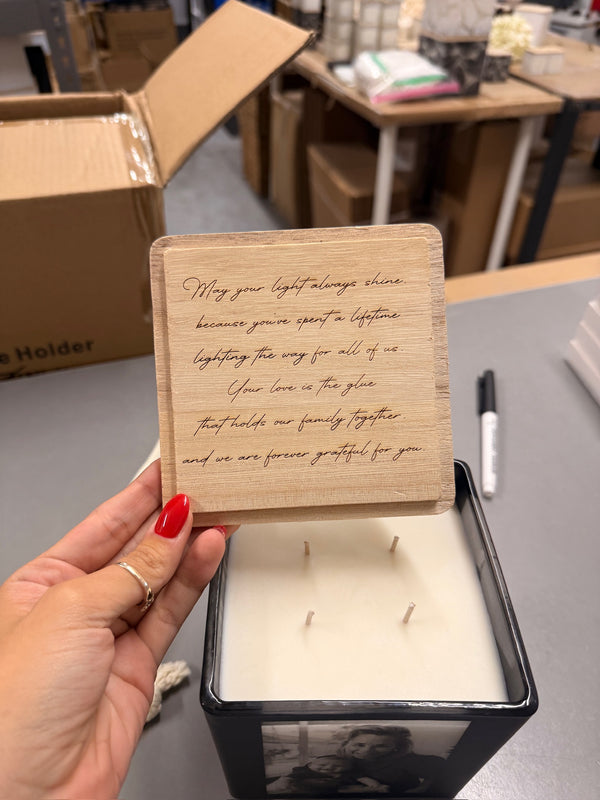 May your light always shine.
because you've spent a lifetime
lighting the way for all of us.
Your love is the glue
that holds our family together
and we are forever grateful for you.
e Holder